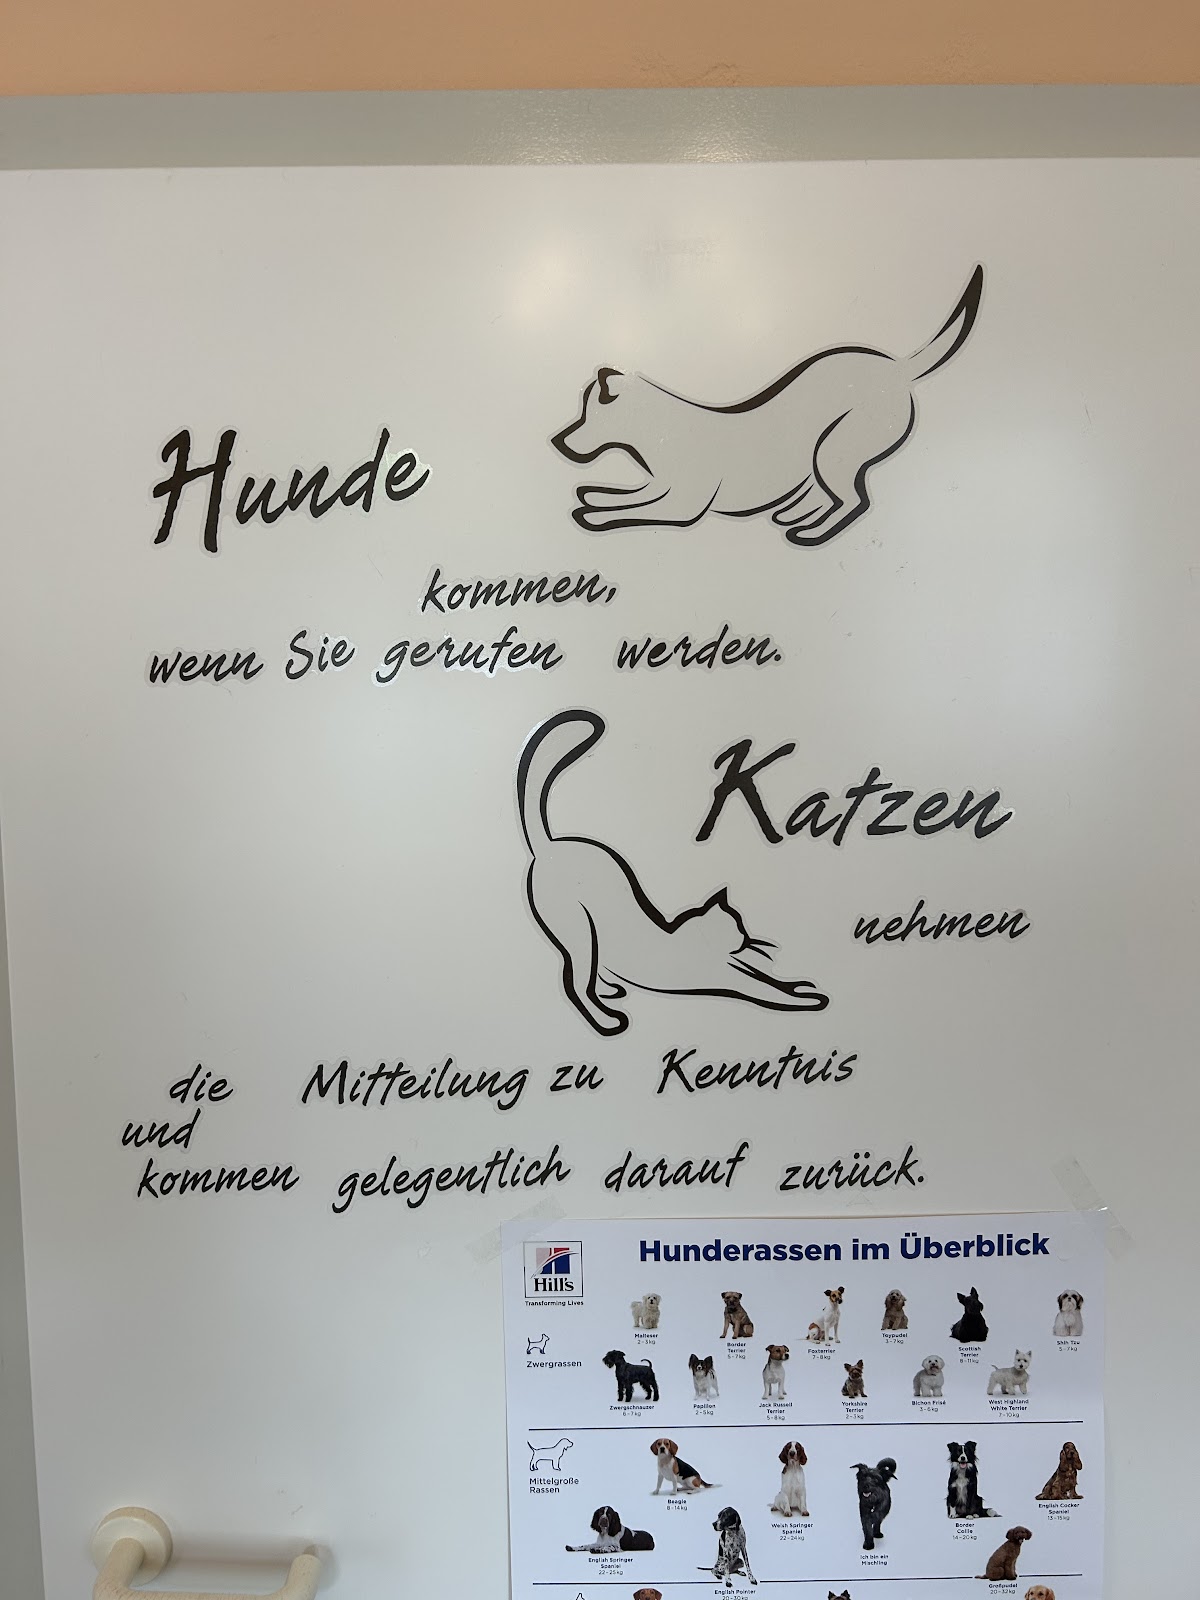 Hunde
kommen,
wenn Sie gerufen werden.
Katzen
nehmen
die Mitteilung zu Kenntnis
und
kommen gelegentlich darauf zurück.
Hunderassen im Überblick
Hill's
Transforming Lives
Zwergrassen
Malteser
2-3kg
Border
Terrier
5-7kg
Foxterrier
7-8kg
Toypudel
3-7kg
Scottish
Terrier
8-11kg
Shih Tzu
5-7kg
Zwergschnauzer
6-7kg
Papillon
2-5kg
Jack Russell
Terrier
5-8kg
Yorkshire
Terrier
2-3kg
Bichon Frisé
3-6kg
West Highland
White Terrier
7-10kg
Mittelgroße
Rassen
Beagle
8-14kg
Welsh Springer
Spaniel
22-24kg
Ich bin ein
Mischling
Border
Collie
14-20kg
English Cocker
Spaniel
13-15kg
English Springer
Spaniel
22-25kg
English Pointer
20-30kg
Großpudel
20-32kg